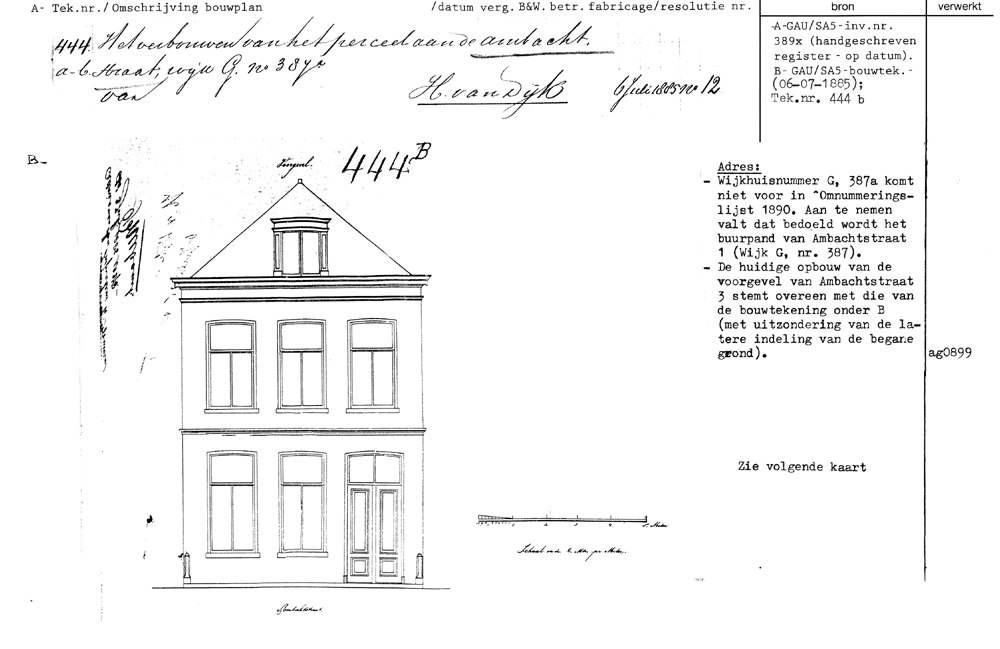 A- Tek.nr./Omschrijving bouwplan /datum verg. B&W. betr. fabricage/resolutie nr. bron verwerkt
444. Het verbouwen van het perceel aan de ambacht.
straat, wijk G. no 387a
van H. van Dijk 6 Juli 1885 no 12
-A-GAU/SA5-inv.nr.
389x (handgeschreven
register - op datum).
B- GAU/SA5-bouwtek.-
(06-07-1885);
Tek.nr. 444 b
B-
Voorgevel.
444 B
Adres:
- Wijkhuisnummer G, 387a komt
niet voor in "Omnummerings-
lijst 1890. Aan te nemen
valt dat bedoeld wordt het
buurpand van Ambachtstraat
1 (Wijk G, nr. 387).
- De huidige opbouw van de
voorgevel van Ambachtstraat
3 stemt overeen met die van
de bouwtekening onder B
(met uitzondering van de la-
tere indeling van de begane
grond).
ag0899
Zie volgende kaart
1. 2. 3. 4. 5. Meter
Schaal per Meter.
Ambachtstraat.